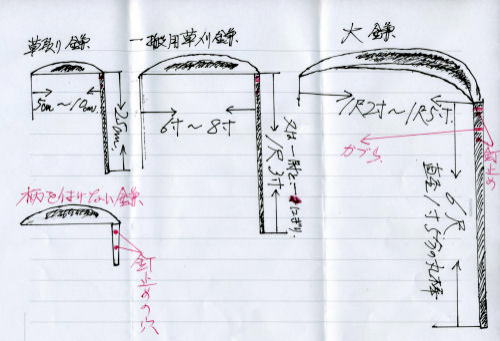 草取り鎌
一搬用草刈鎌
大鎌
5cm〜10cm
25cm
6寸〜8寸
又は一尺と一にぎり.
1尺3寸
1尺2寸〜1尺5寸
かづら
釘止め
6尺
直径1寸5分の丸棒
柄を付けない鎌
釘止めの穴